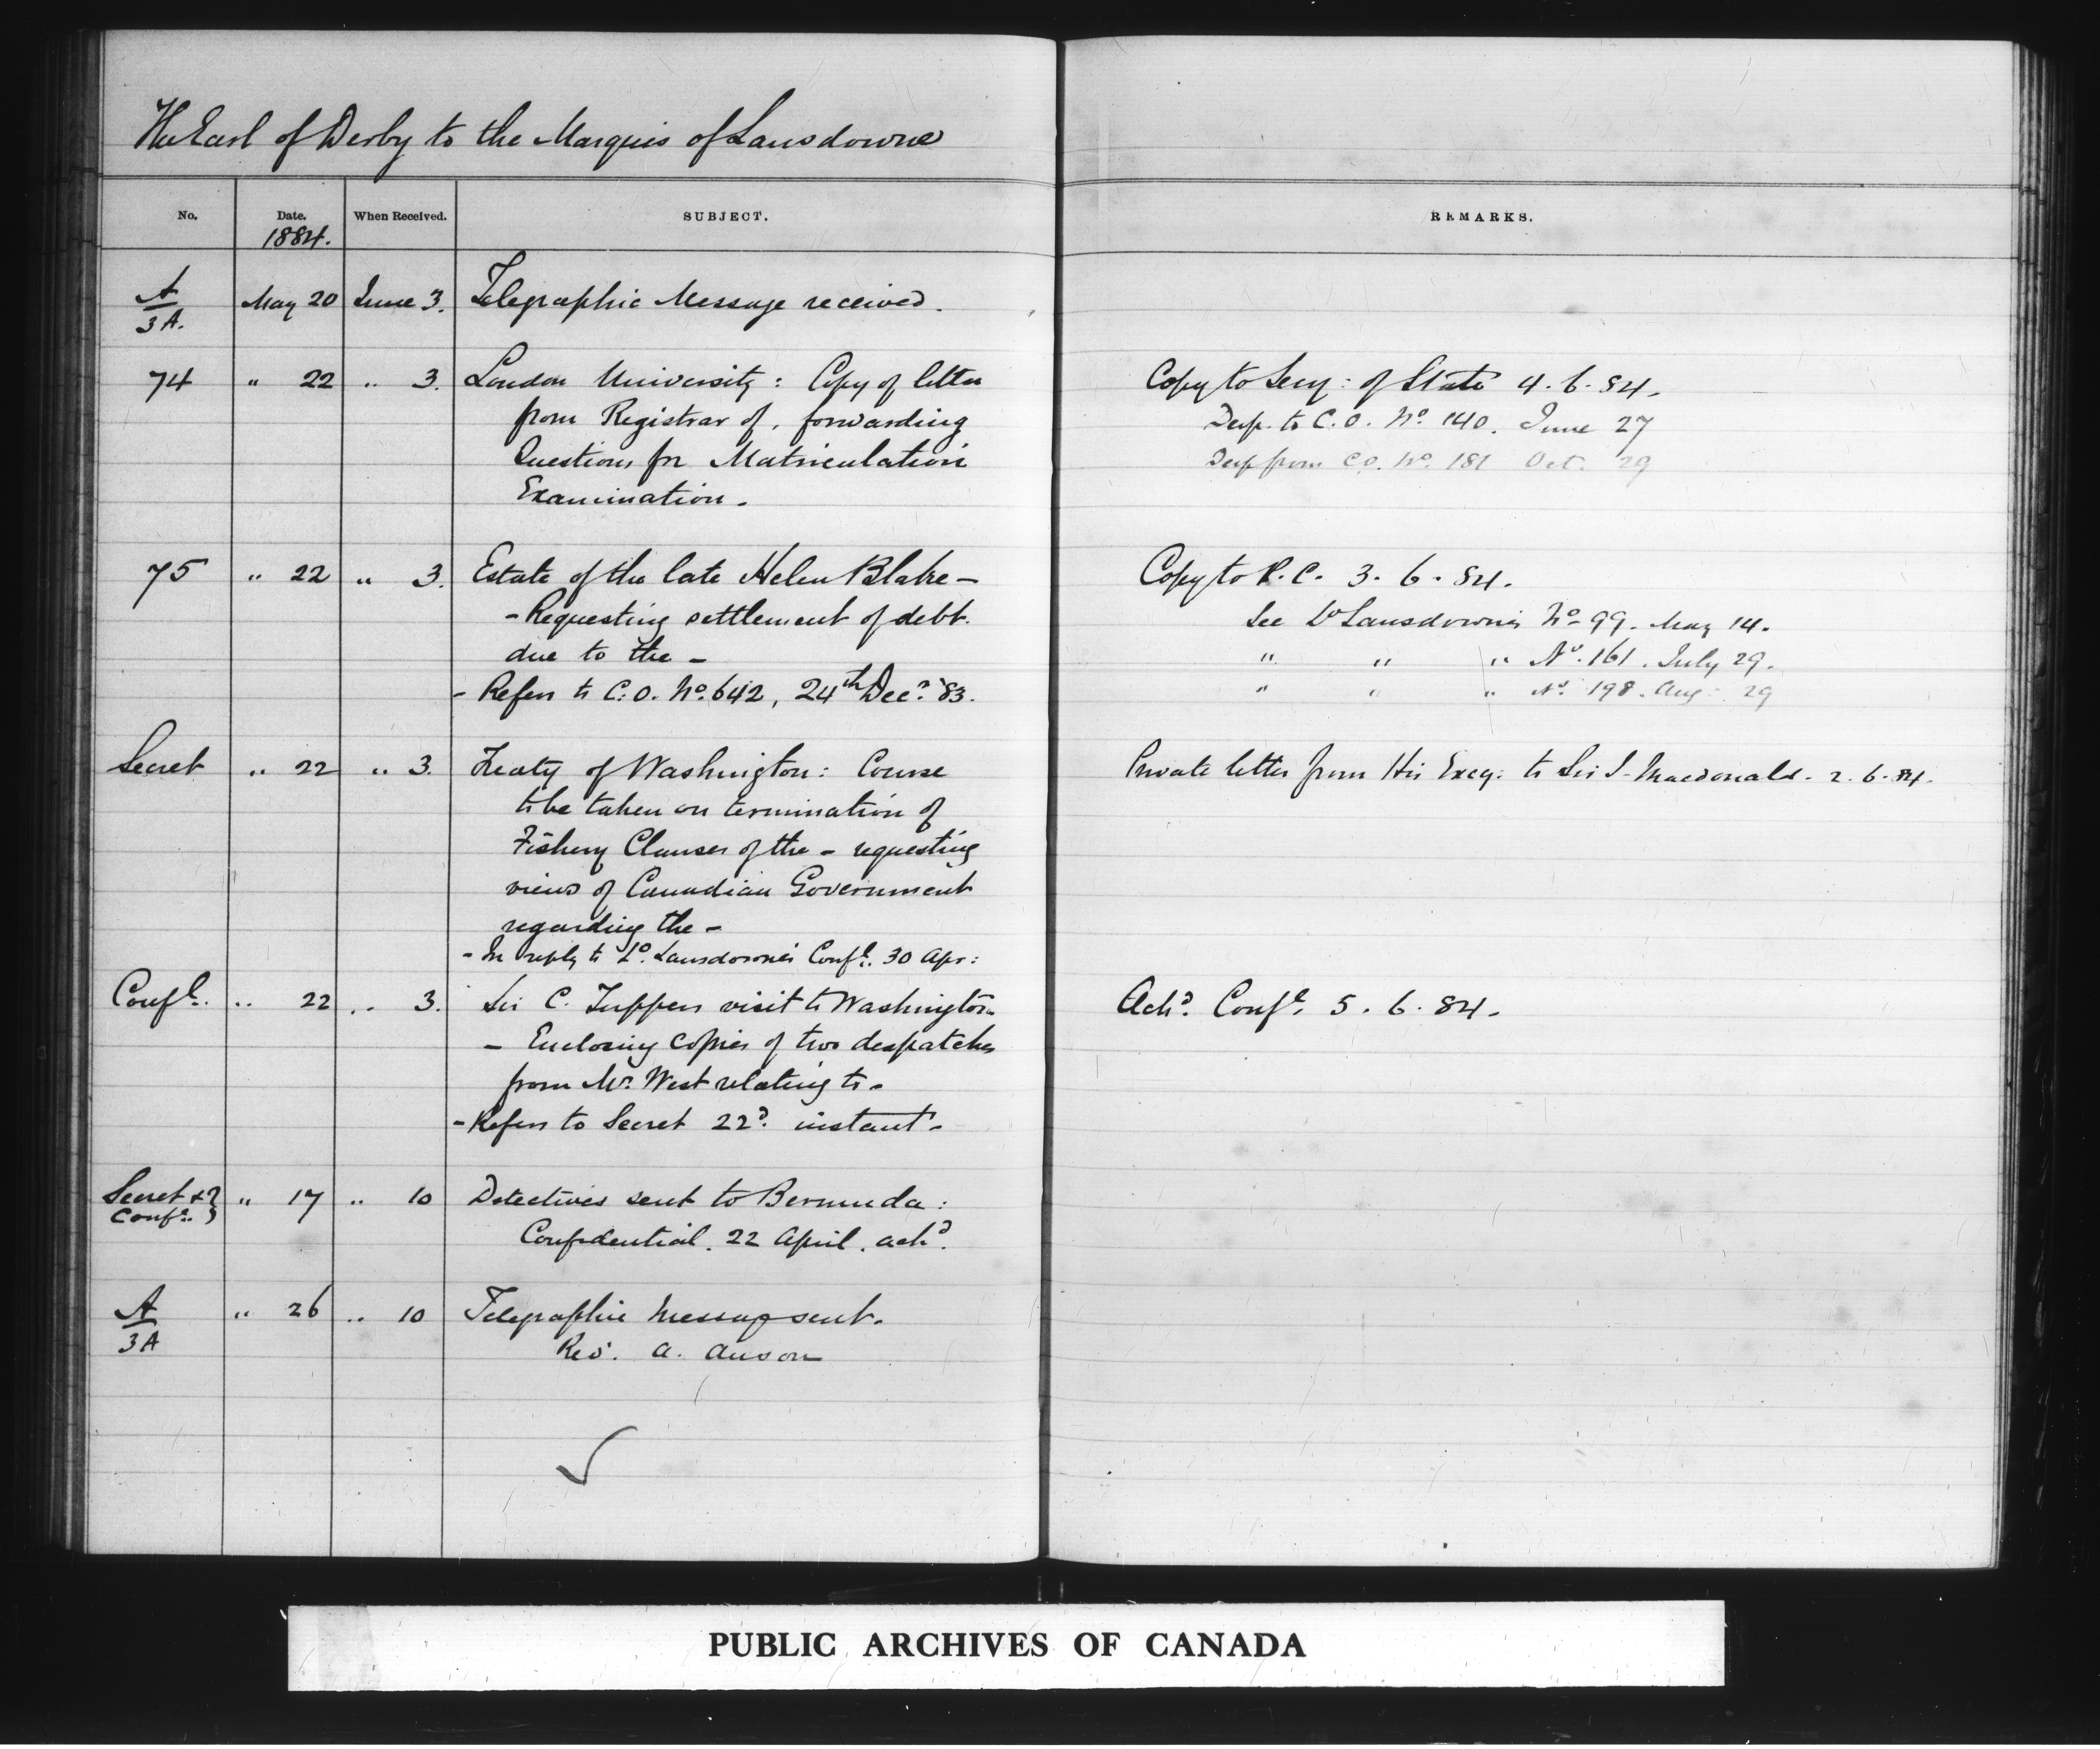 The Earl of Derby to the Marquis of Lansdowne
No. Date. When Received. SUBJECT. REMARKS.
1884.
A/3A. May 20 June 3. Telegraphic Message received.
74 " 22 " 3. London University: Copy of letter
from Registrar of, forwarding
Questions for Matriculation
Examination.
Copy to Secy: of State 4.6.84.
Desp. to C.O. No. 140. June 27
Desp from C.O. No. 181 Oct. 29
75 " 22 " 3. Estate of the late Helen Blake -
- Requesting settlement of debt.
due to the -
- Refers to C.O. No. 642, 24th Decr. '83.
Copy to P.C. 3.6.84.
See Ld Lansdowne's No 99. May 14.
" " " No. 161. July 29.
" " " No. 198. Aug: 29
Secret " 22 " 3. Treaty of Washington: Course
to be taken on termination of
Fishery Clauses of the - requesting
views of Canadian Government
regarding the -
- In reply to Ld. Lansdowne's Confl. 30 Apr:
Private letter from His Excy: to Sir J. Macdonald. 2.6.84.
Confl. " 22 " 3. Sir C. Tuppers visit to Washington
- Enclosing copies of two despatches
from Mr. West relating to -
- Refers to Secret 22d. instant -
Ackd. Confl. 5.6.84.
Secret & Confl. } " 17 " 10 Detectives sent to Bermuda:
Confidential. 22 April. ackd.
A/3A " 26 " 10 Telegraphic Message sent.
Revd. A. Anson
PUBLIC ARCHIVES OF CANADA